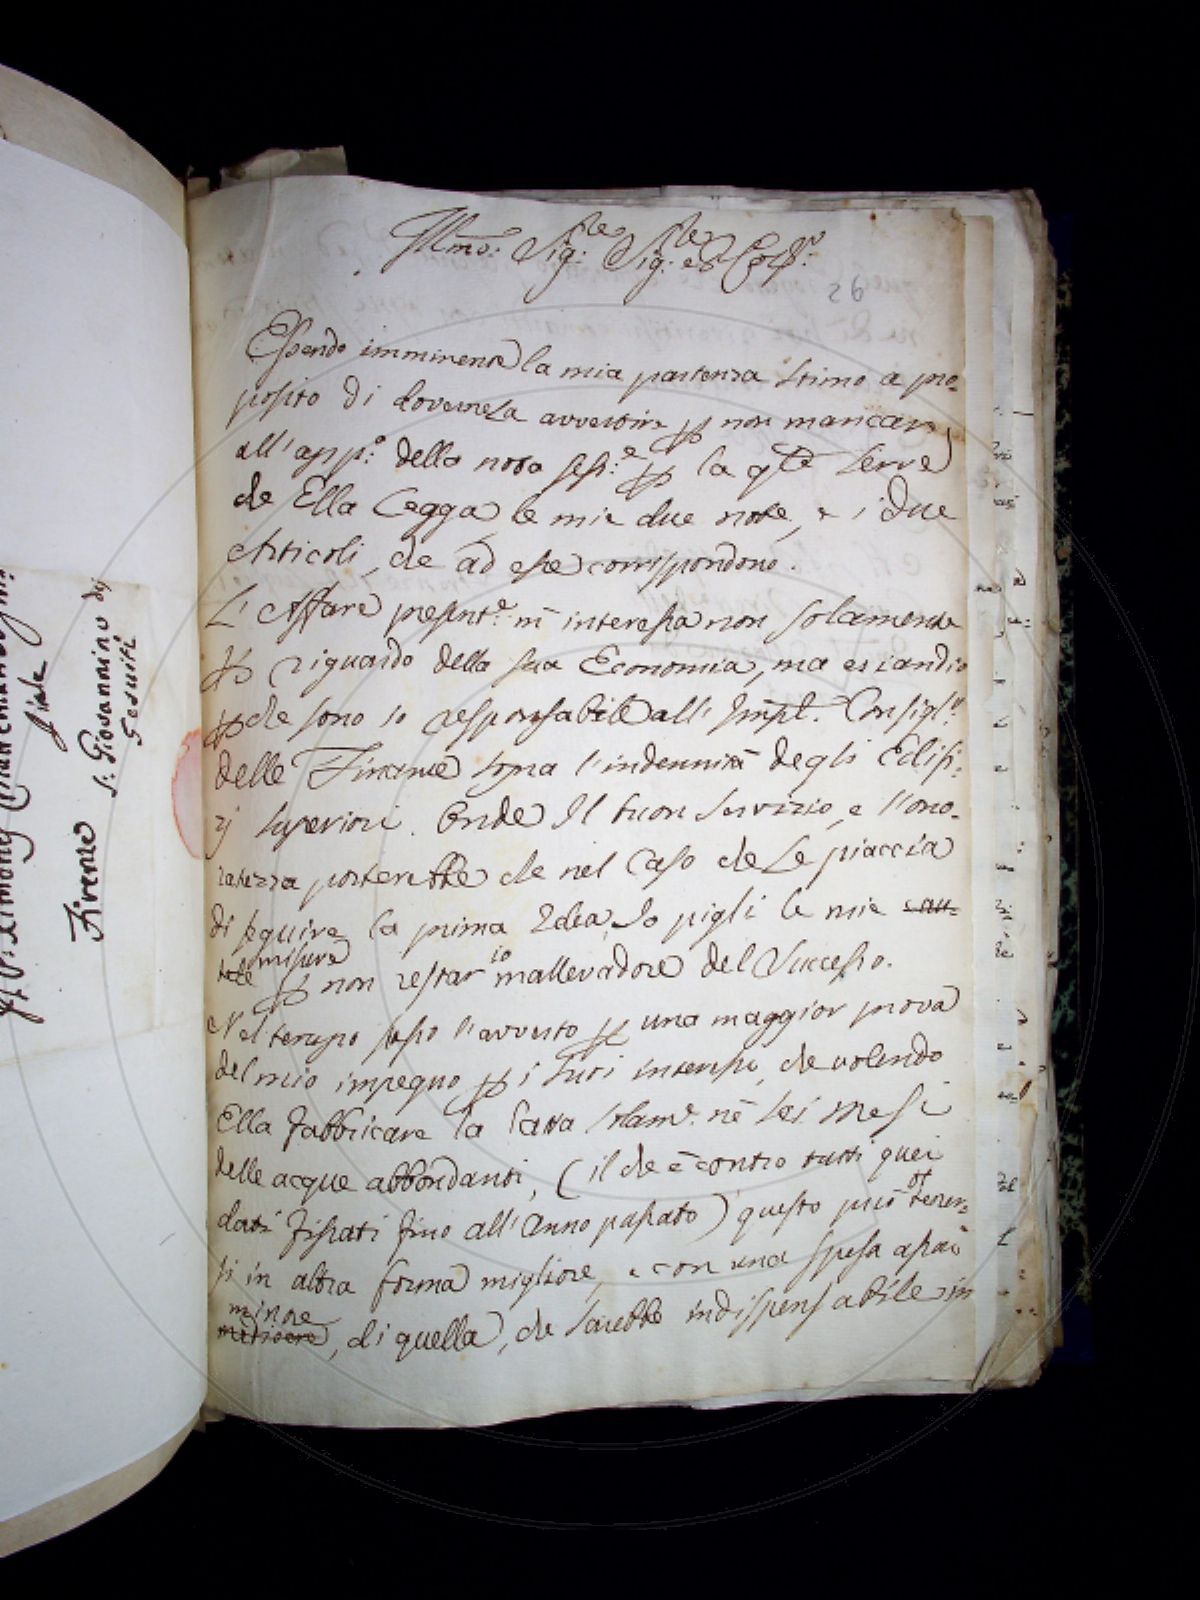 Illmo: Sig:re Sig:re e Pro: Col:mo
26
Essendo imminente la mia partenza stimo a pro-
posito di dovernela avvertire p non mancare
all'app:o della nota fess:e p la qle serve
che Ella legga le mie due note, e i due
Articoli, che ad esse corrispondono.
L'Affare presente m'interessa non solamente
p riguardo della sua Economia, ma eziandio
p che sono io responsabile all'Impl. Consigl:o
delle Finanze sopra l'indennità degli Edifi-
zj superiori. Onde Il buon servizio, e l'ono-
ratezza porterebbe che nel caso che Le piaccia
di seguire la prima Idea, Io pigli le mie cau-
tele misure p non restar io mallevadore del Successo.
Nel tempo stesso l'avverto p una maggior prova
del mio impegno p i suoi interessi, che volendo
Ella fabbricare la Carta solam:e ne sei Mesi
delle acque abbondanti, (il che è contro tutti quei
dati fissati fino all'Anno passato) questo può ottener-
si in altra forma migliore, e con una spesa assai
minore mediocre, di quella, che sarebbe indispensabile in
Firenze
S. Giovannino de
Gesuiti